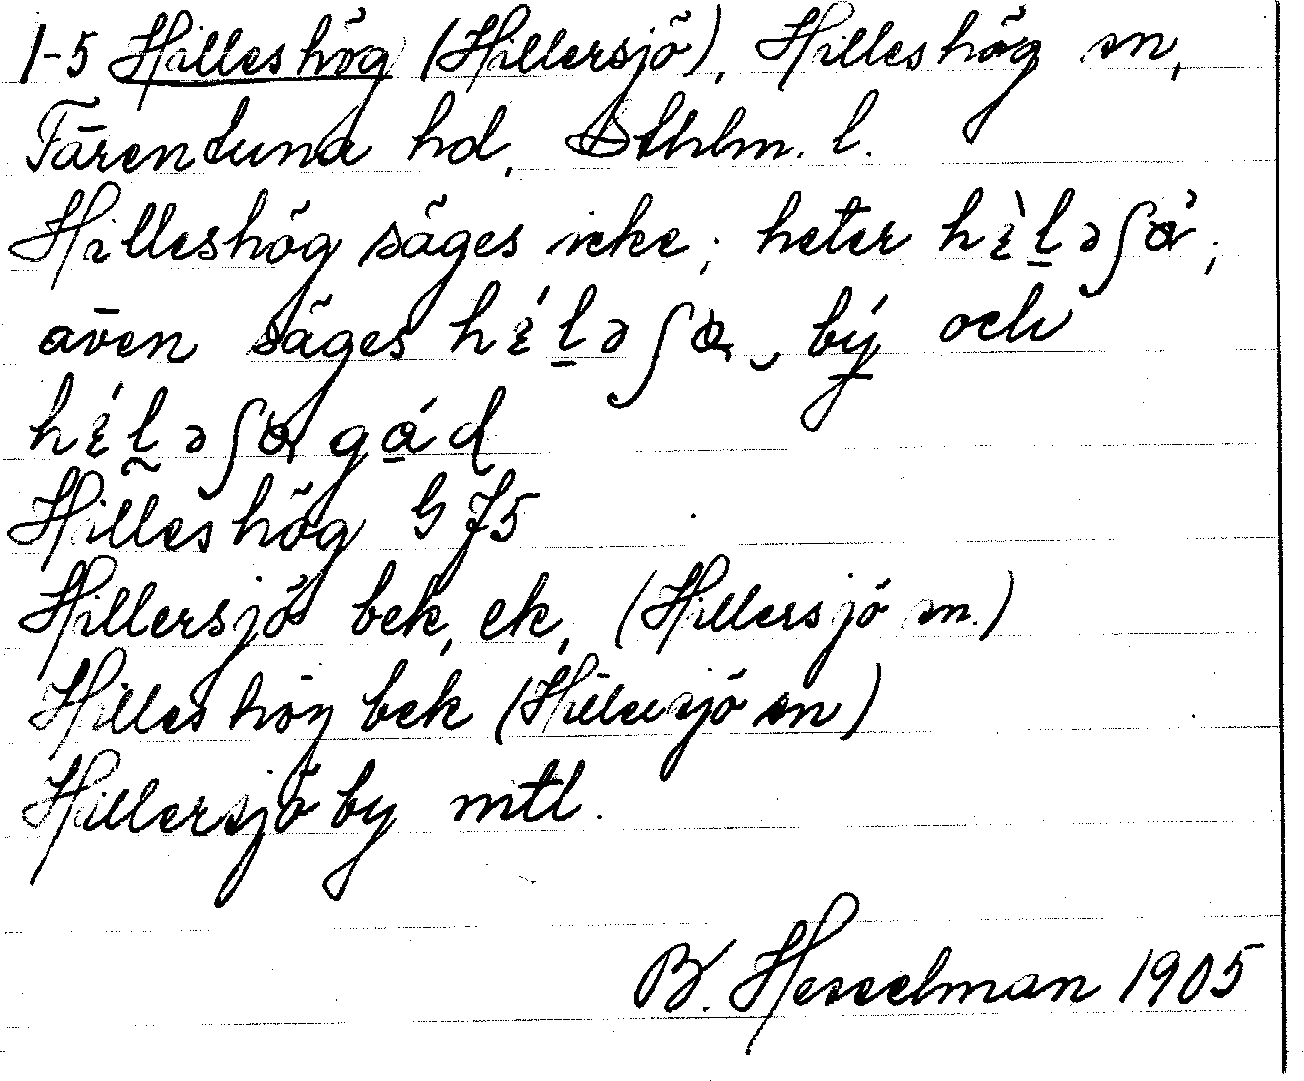 1-5 Hilleshög (Hillersjö), Hilleshög sn,
Färentuna hd, Sthlm. l.
Hilleshög säges icke; heter
även säges och
Hilleshög G J5
Hillersjö bek, ek, (Hillersjö sn.)
Hilleshög bek (Hillersjö sn)
Hillersjö by mtl.
B. Hesselman 1905